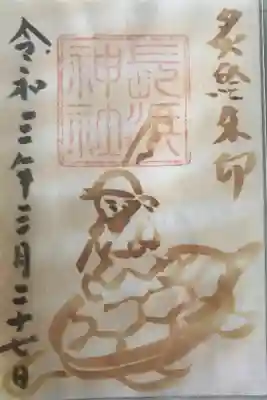 炙絵朱印
長浜
神社
令和三年三月二十七日